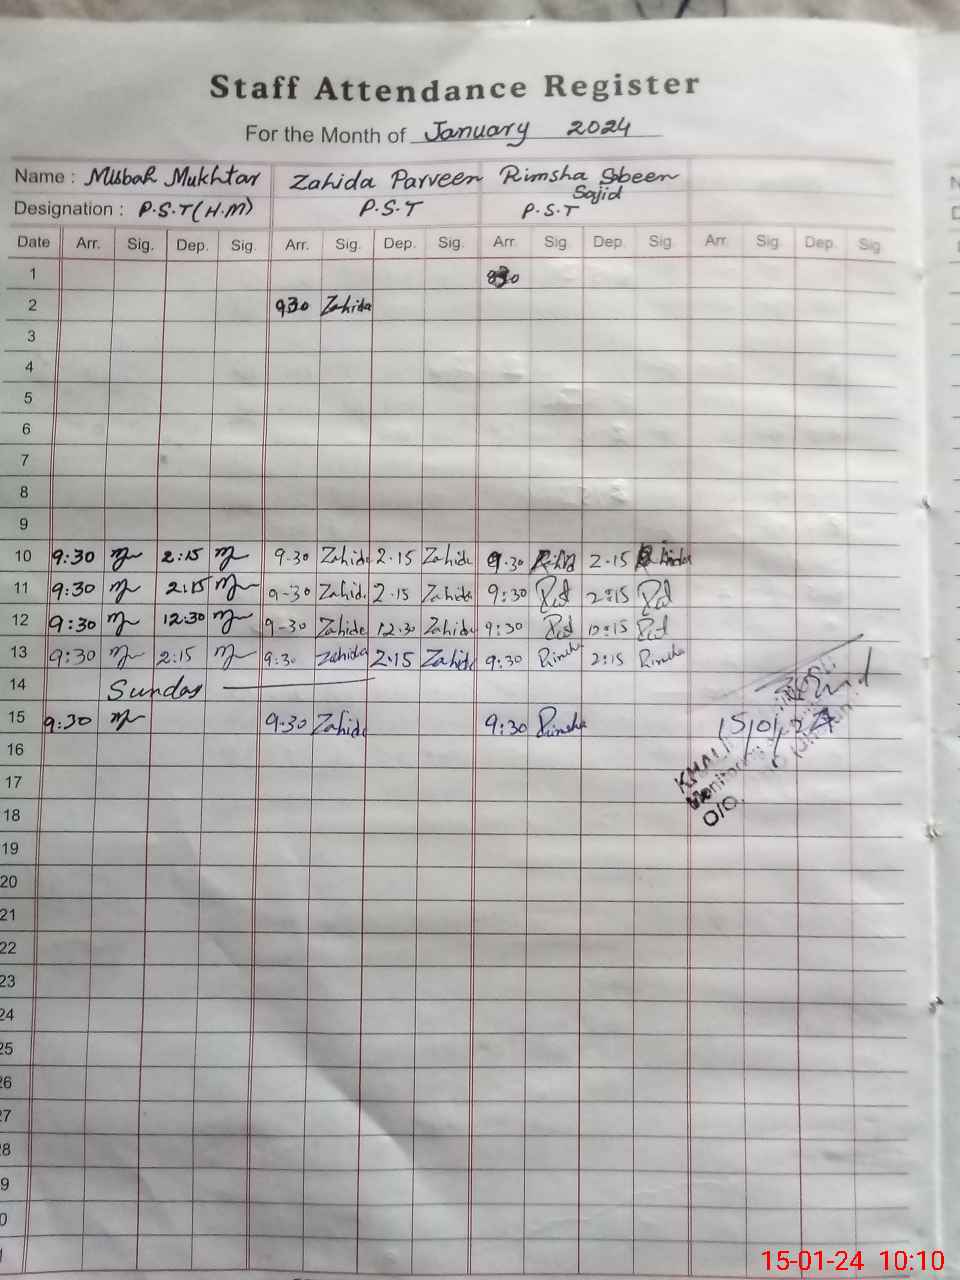 Staff Attendance Register
For the Month of January 2024
Name : Misbah Mukhtar Zahida Parveen Rimsha Sabeen Sajid
Designation : P.S.T (H.M) P.S.T P.S.T
Date Arr. Sig. Dep. Sig. Arr. Sig. Dep. Sig. Arr. Sig. Dep. Sig. Arr. Sig. Dep. Sig.
1
2 930 Zahida
3
4
5
6
7
8
9
10 9:30 2:15 9.30 Zahida 2.15 Zahida 9.30 2.15
11 9:30 2:15 9-30 Zahida 2.15 Zahida 9:30 2:15
12 9:30 12:30 9-30 Zahida 12.30 Zahida 9:30
13 9:30 2:15 9:30 Zahida 2:15 Zahida 9:30 Rimsha 2:15 Rimsha
14 Sunday
15 9:30 9.30 Zahida 9:30 Rimsha 15/01/24
16
17
18
19
20
21
22
23
24
25
26
27
28
9
0
1
15-01-24 10:10